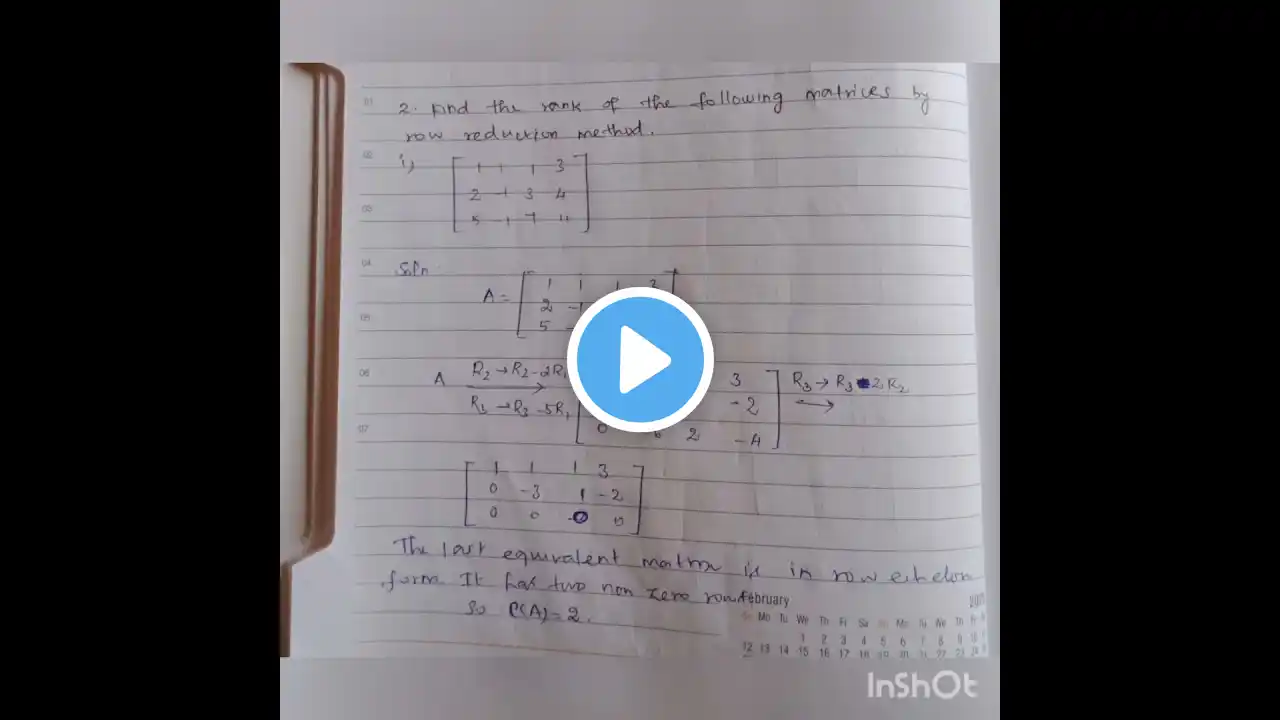 2. Find the rank of the following matrices by
row reduction method.
i)
1 1 1 3
2 -1 3 4
5 -1 7 11
Soln
A =
1 1 1 3
2 -1
5
A R2 → R2 - 2R1 3 R3 → R3 - 2R2
R3 → R3 - 5R1 -2
0 -6 2 -4
1 1 1 3
0 -3 1 -2
0 0 0 0
The last equivalent matrix is in row echelon
form. It has two non zero rows.
So ρ(A) = 2.
February
Mo Tu We Th Fr Sa Mo Tu We Th
1 2 3 4 5 6 7 8 9 10
12 13 14 15 16 17 18 19 20 21 22 23
InShOt